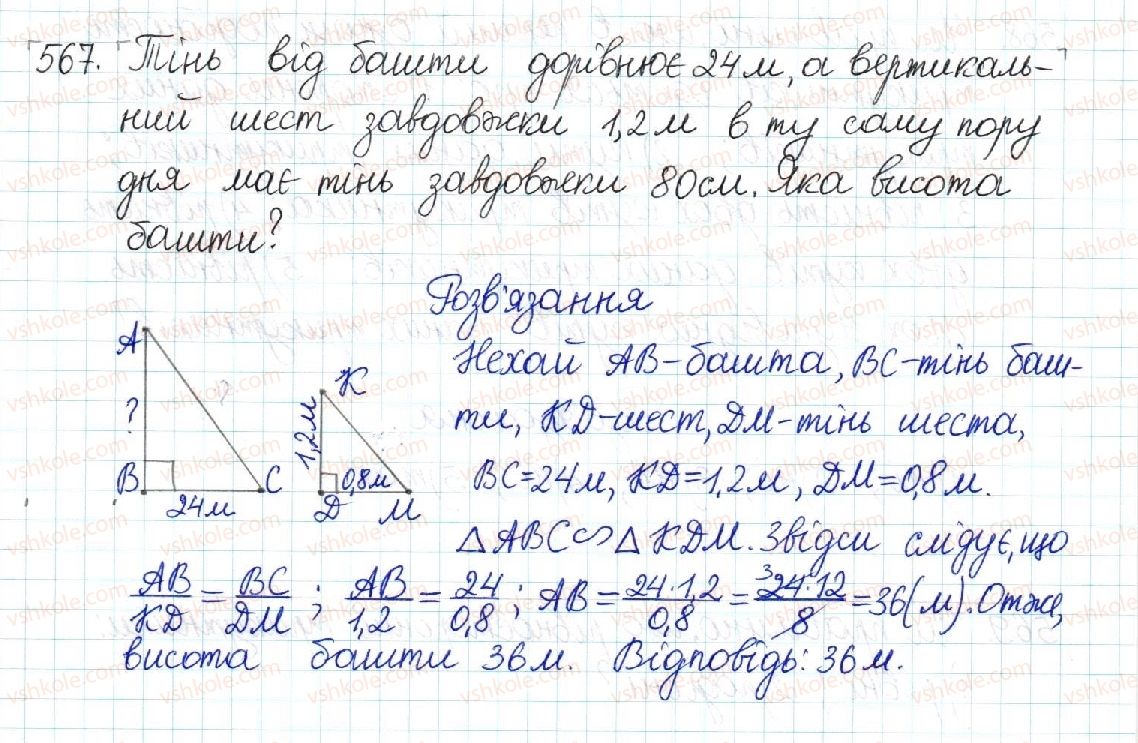 567. Тінь від башти дорівнює 24 м, а вертикаль-
ний шест завдовжки 1,2 м в ту саму пору
дня має тінь завдовжки 80 см. Яка висота
башти?
Розв'язання
A
?
B
24 м
C
K
1,2 м
0,8 м
D
M
Нехай AB – башта, BC – тінь баш-
ти, KD – шест, DM – тінь шеста,
BC = 24 м, KD = 1,2 м, DM = 0,8 м.
△ABC ∽ △KDM. Звідси слідує, що
AB/KD = BC/DM; AB/1,2 = 24/0,8; AB = 24·1,2/0,8 = ³24·12/8 = 36(м). Отже,
висота башти 36 м. Відповідь: 36 м.
vshkole.com